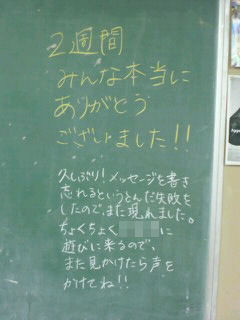 2週間
みんな本当に
ありがとう
ございました!!
久しぶり!メッセージを書き
忘れるというとんだ失敗を
したので、また現れました。
ちょくちょく に
遊びに来るので、
また見かけたら声を
かけてね!!